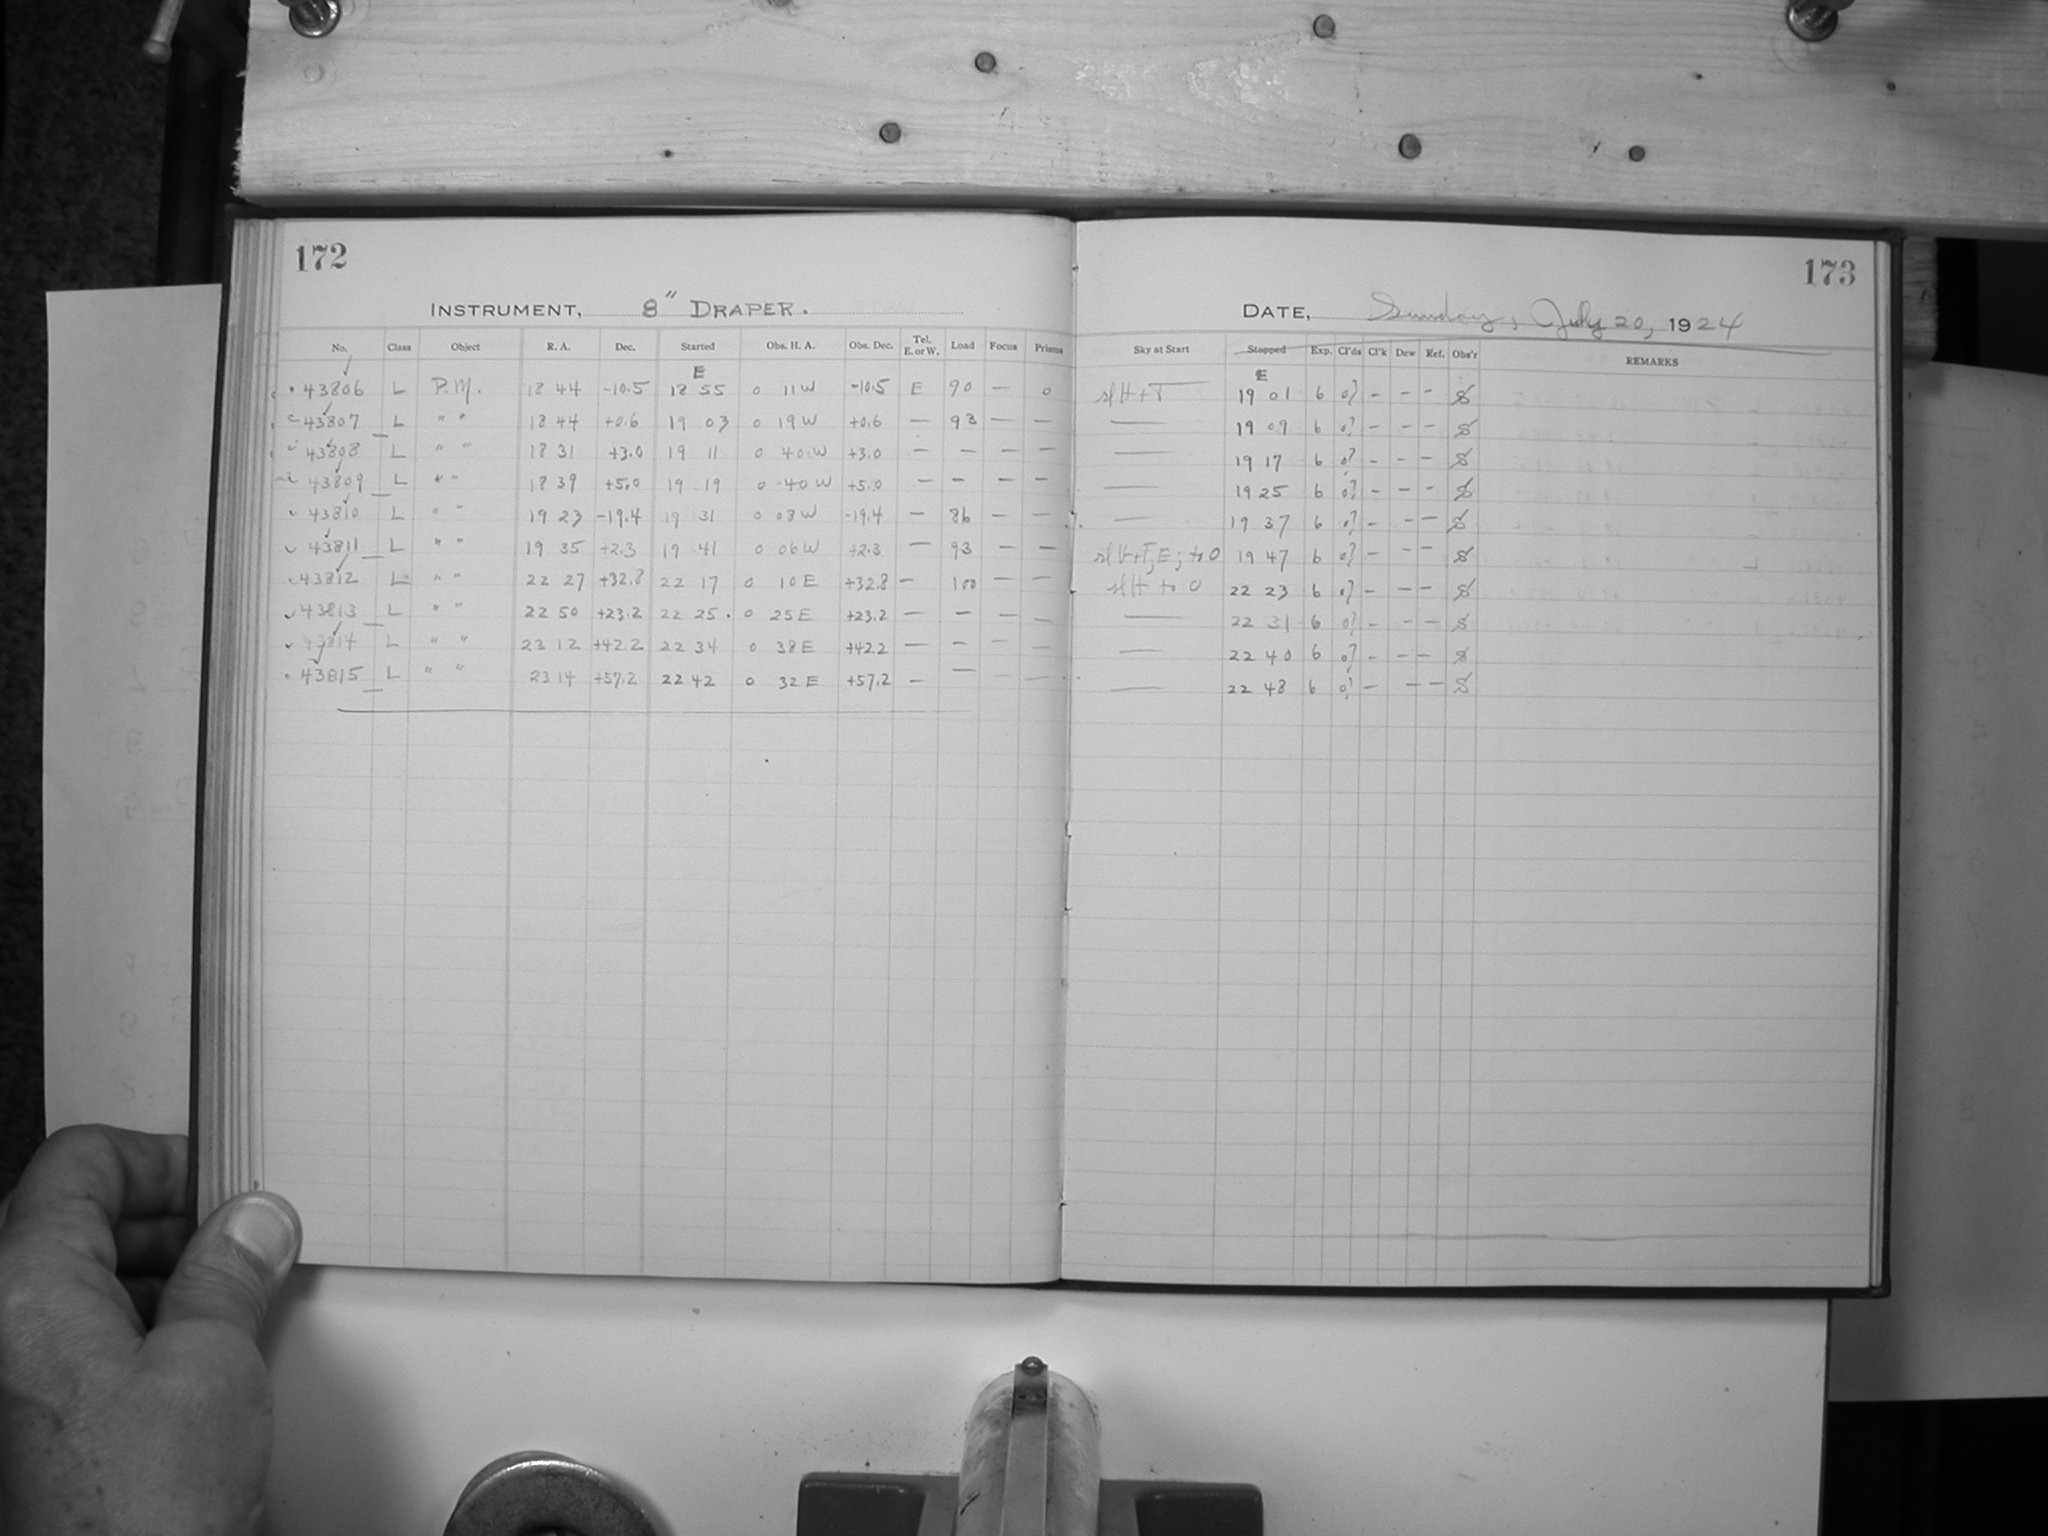 172
173
INSTRUMENT, 8" DRAPER.
DATE, Sunday, July 20, 1924
No. Class Object R. A. Dec. Started Obs. H. A. Obs. Dec. Tel. E. or W. Load Focus Prisms Sky at Start Stopped Exp. Cl'ds Cl'k Dew Ref. Obs'r REMARKS
E E
43806 L P.M. 18 44 -10.5 18 55 0 11 W -10.5 E 90 — 0 sl H + T 19 01 6 0? – – –
43807 L " " 18 44 +0.6 19 03 0 19 W +0.6 — 93 — — — 19 09 6 0? – – –
43808 L " " 18 31 +3.0 19 11 0 40 W +3.0 — — — — — 19 17 6 0? – – –
43809 L " " 18 39 +5.0 19 19 0 40 W +5.0 — — — — — 19 25 6 0? – – –
43810 L " " 19 23 -19.4 19 31 0 08 W -19.4 — 86 — — — 19 37 6 0? – – –
43811 L " " 19 35 +2.3 19 41 0 06 W +2.3 — 93 — — sl H+T, E; to 0 19 47 6 0? – – –
43812 L " " 22 27 +32.8 22 17 0 10 E +32.8 — 100 — — sl H to 0 22 23 6 0? – – –
43813 L " " 22 50 +23.2 22 25 0 25 E +23.2 — — — — — 22 31 6 0? – – –
43814 L " " 23 12 +42.2 22 34 0 38 E +42.2 — — — — — 22 40 6 0? – – –
43815 L " " 23 14 +57.2 22 42 0 32 E +57.2 — — — — — 22 48 6 0? – – –